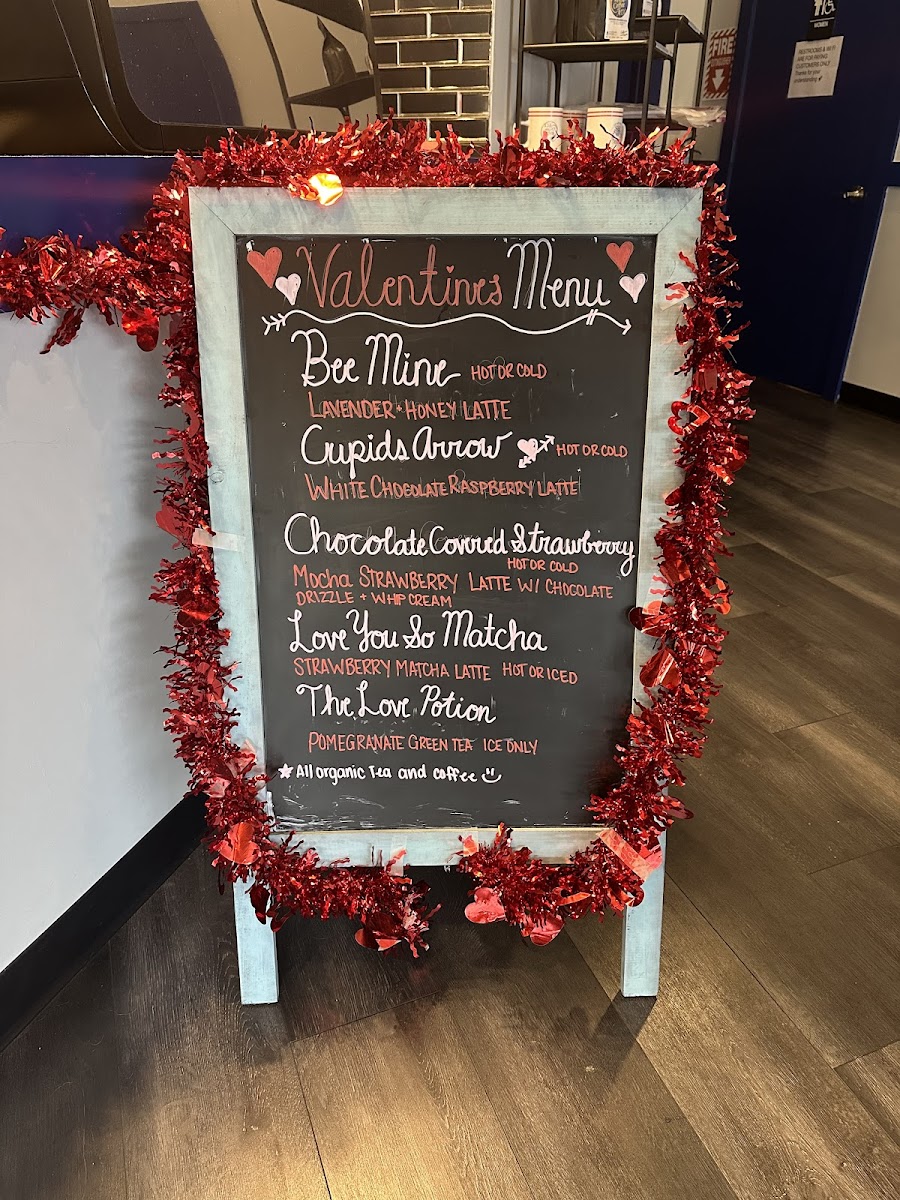 WOMEN
RESTROOMS & WIFI
ARE FOR PAYING
CUSTOMERS ONLY
Thanks for your
understanding
FIRE
Valentines Menu
Bee Mine HOT OR COLD
LAVENDER + HONEY LATTE
Cupids Arrow HOT OR COLD
WHITE CHOCOLATE RASPBERRY LATTE
Chocolate Covered Strawberry
HOT OR COLD
Mocha STRAWBERRY LATTE W/ CHOCOLATE
DRIZZLE + WHIP CREAM
Love You So Matcha
STRAWBERRY MATCHA LATTE HOT OR ICED
The Love Potion
POMEGRANATE GREEN TEA ICE ONLY
★ All organic Tea and coffee